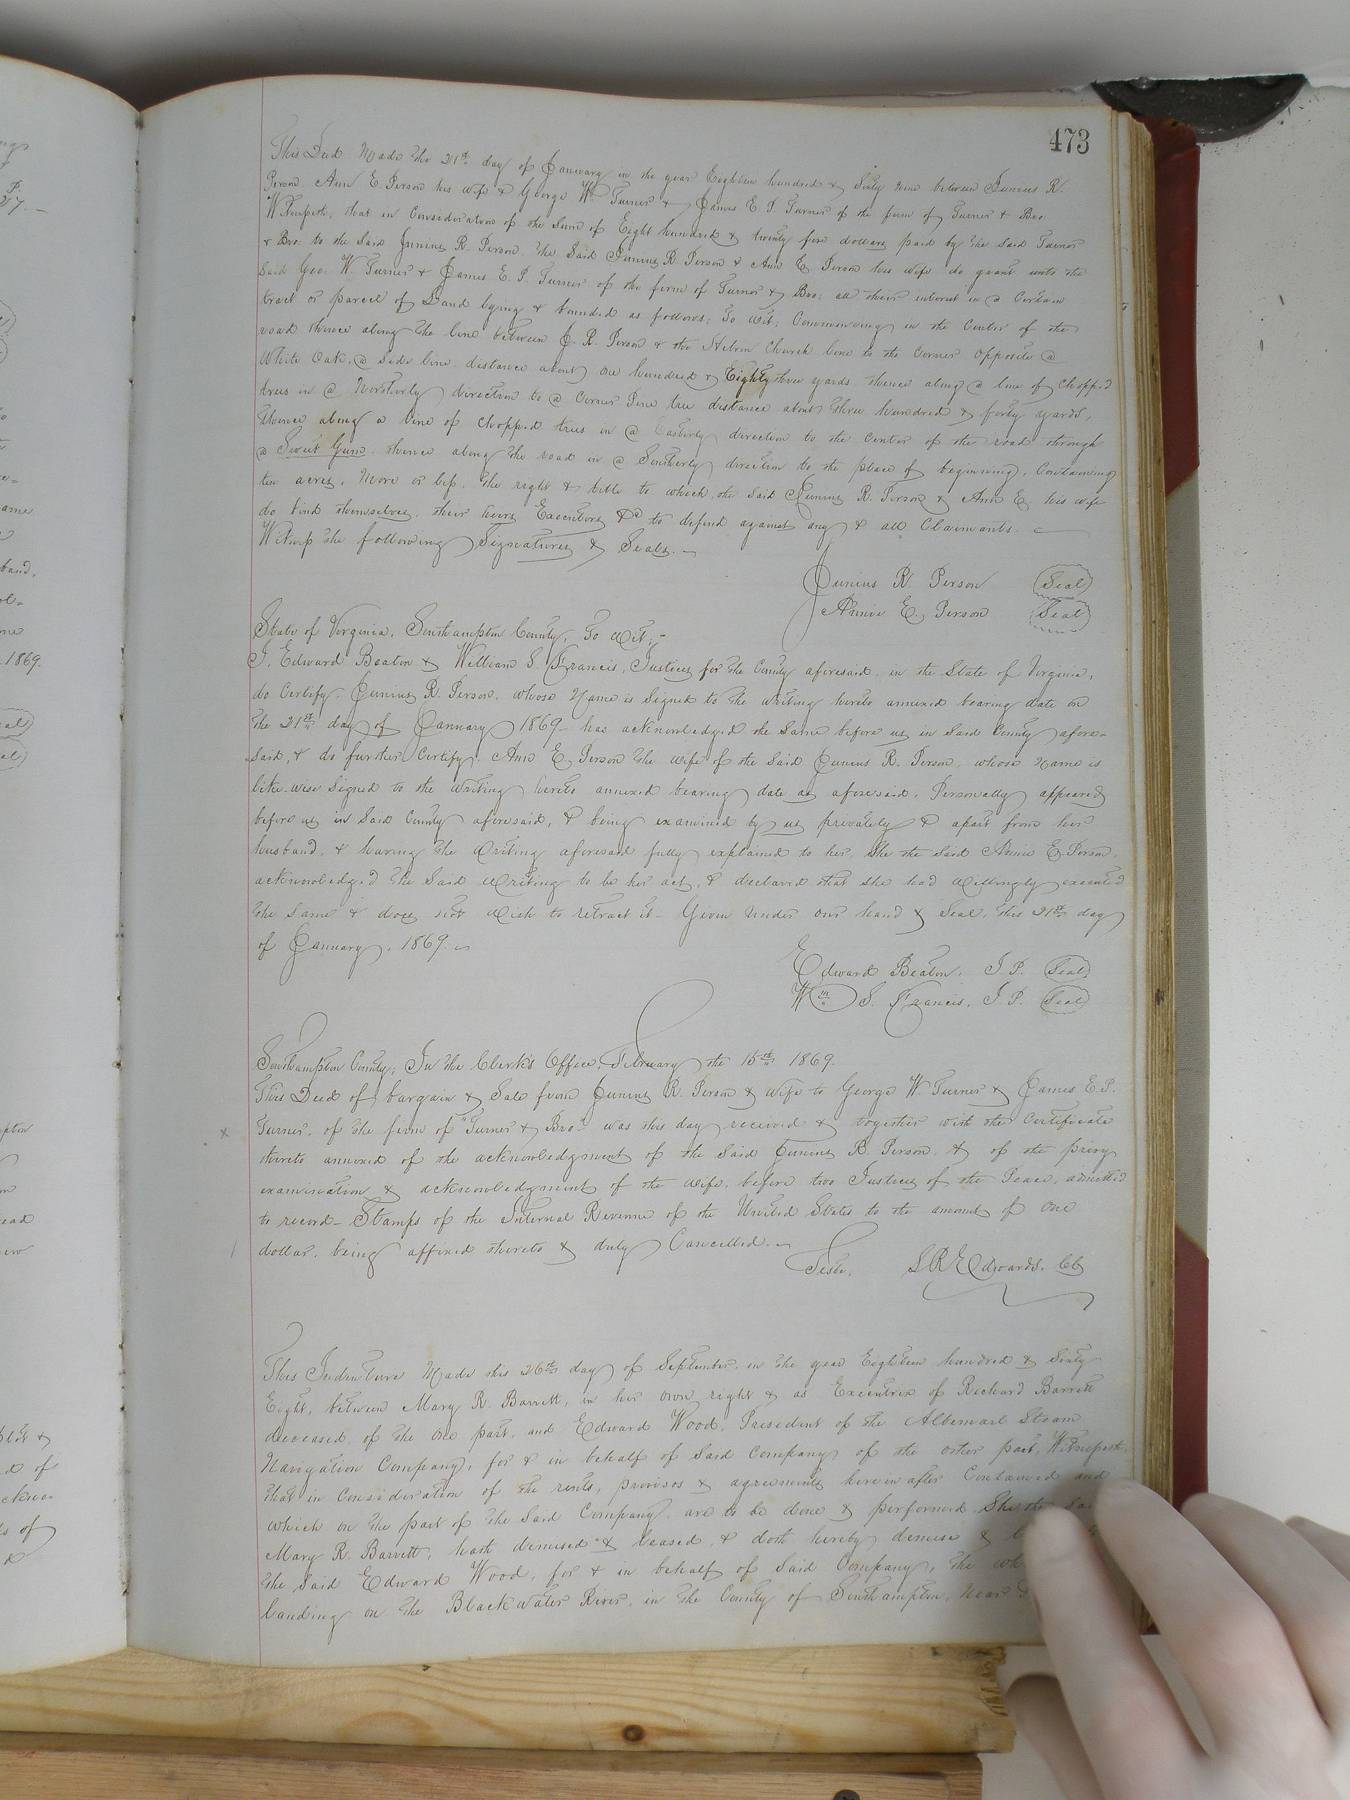 473
This Deed Made the 21st day of January in the year Eighteen hundred & Sixty nine between Junius R.
Person, Ann E. Person his wife & George Wm Turner & James E. P. Turner of the firm of Turner & Bro:
Witnesseth, that in Consideration of the Sum of Eight hundred & twenty five dollars paid by the Said Turner
& Bro: to the Said Junius R. Person, the Said Junius R. Person & Ann E. Person his wife do grant unto the
Said Geo. W. Turner & James E. P. Turner of the firm of Turner & Bro: all their interest in a Certain
tract or parcel of Land lying & bounded as follows; To wit; Commencing in the Center of the
road thence along the line between J. R. Person & the Hebron Church line to the Corner opposite a
White Oak, a Side line, distance about One hundred & Eighty three yards thence along a line of Chopped
trees in a Northerly direction to a Corner Pine tree distance about three hundred & forty yards,
thence along a line of Chopped trees in a Easterly direction to the Center of the road through
a Sweet Gum, thence along the road in a Southerly direction to the place of beginning, Containing
ten acres, More or less, the right & title to which the Said Junius R. Person & Ann E. his wife
do bind themselves, their heirs Executors &c to defend against any & all Claimants.
Witness the following Signatures & Seals.
Junius R. Person (Seal)
Annie E. Person (Seal)
State of Virginia, Southampton County, To wit;
I, Edward Beaton & William S. Francis, Justices for the County aforesaid in the State of Virginia,
do Certify, Junius R. Person, whose Name is Signed to the writing hereto annexed bearing date on
the 21st day of January 1869 has acknowledged the Same before us in Said County afore-
Said, & do further Certify, Ann E. Person the wife of the Said Junius R. Person, whose Name is
like-wise Signed to the writing hereto annexed bearing date as aforesaid, Personally appeared
before us in Said County aforesaid, & being examined by us privately & apart from her
husband, & having the writing aforesaid fully explained to her, She the Said Annie E. Person,
acknowledged the Said writing to be her act, & declared that She had willingly executed
the Same & does not wish to retract it. Given under our hand & Seal, this 21st day
of January, 1869.
Edward Beaton, J. P. (Seal)
Wm S. Francis, J. P. (Seal)
Southampton County, In the Clerk's Office, February the 15th 1869.
This Deed of bargain & Sale from Junius R. Person & wife to George W. Turner & James E. P.
Turner, of the firm of "Turner & Bro" was this day received & together with the Certificate
thereto annexed of the acknowledgment of the Said Junius R. Person, & of the privy
examination & acknowledgment of the wife, before two Justices of the Peace, admitted
to record. Stamps of the Internal Revenue of the United States to the amount of One
dollar, being affixed thereto & duly Cancelled.
Teste, L R Edwards, CC
This Indenture Made this 26th day of September in the year Eighteen hundred & Sixty
Eight, between Mary R. Barrett, in her own right & as Executrix of Richard Barrett
deceased, of the One part, and Edward Wood, President of the Albemarl Steam
Navigation Company, for & in behalf of Said Company of the other part, Witnesseth
that in Consideration of the rents, provisos & agreements herein after Contained and
which on the part of the Said Company, are to be done & performed She the Sai
Mary R. Barrett, hath demised & leased, & doth hereby demise &
the Said Edward Wood, for & in behalf of Said Company, the wh
landing on the Blackwater River, in the County of Southampton, Near